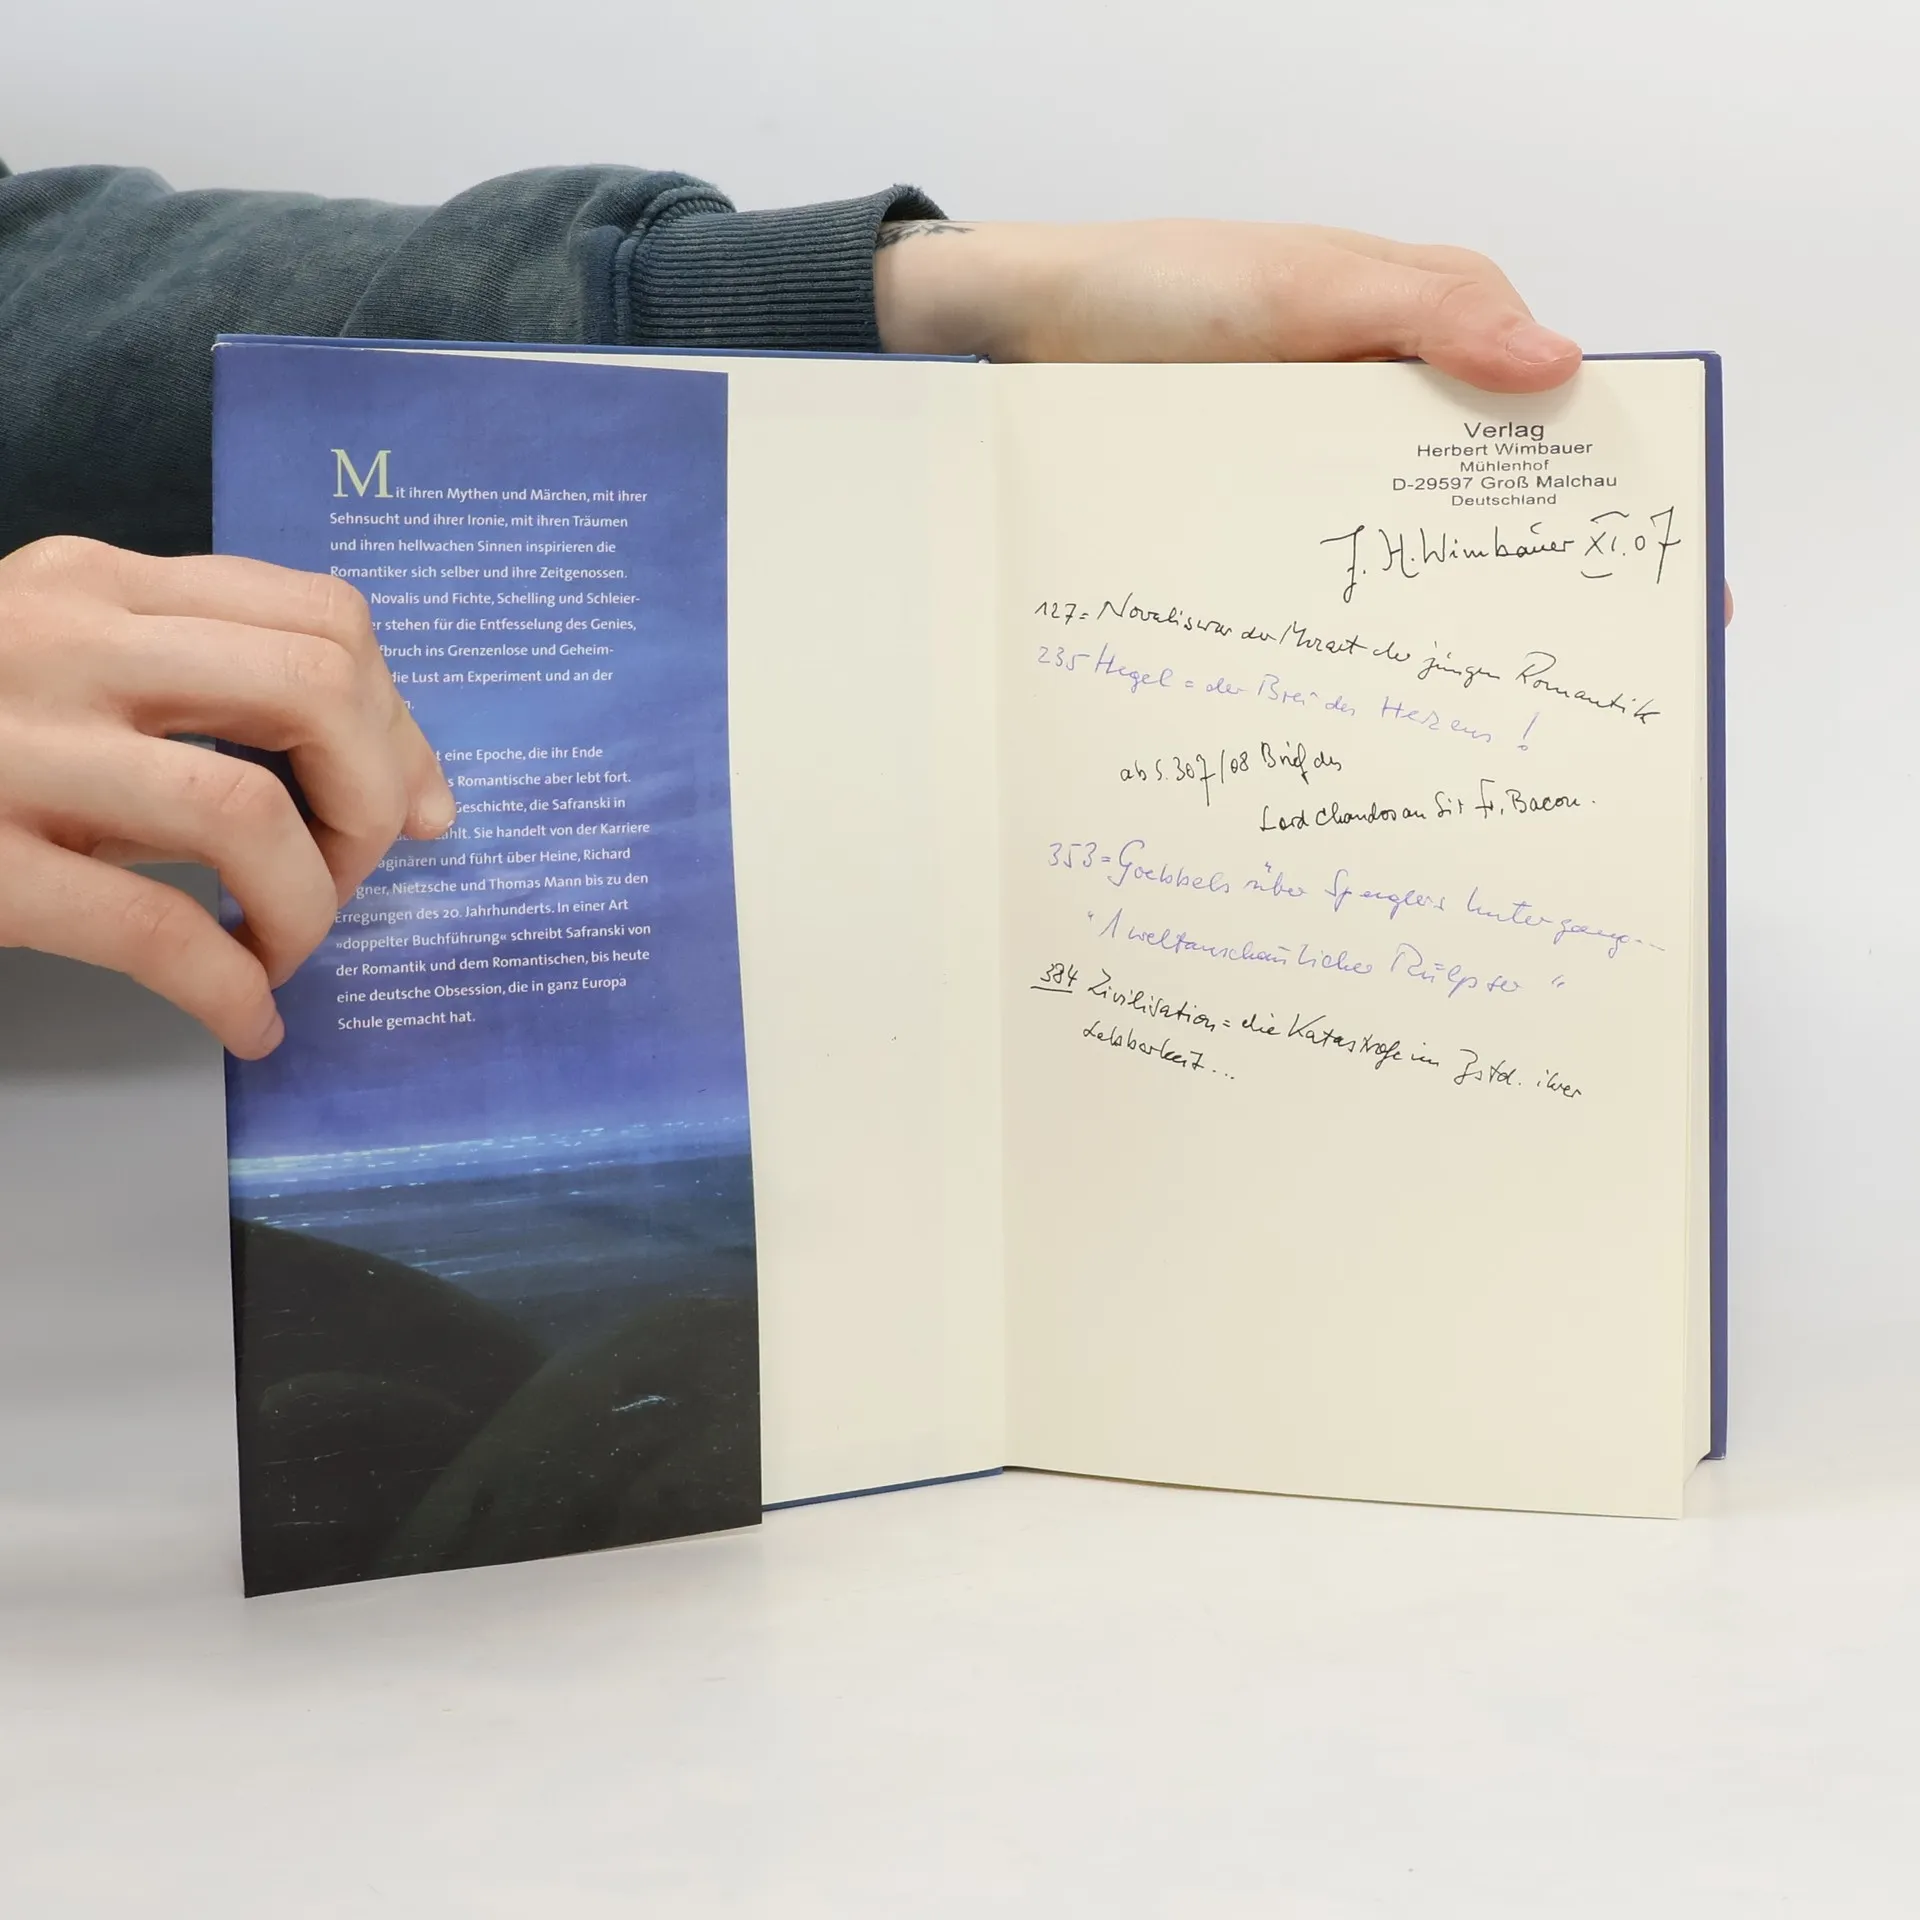 Mit ihren Mythen und Märchen, mit ihrer
Sehnsucht und ihrer Ironie, mit ihren Träumen
und ihren hellwachen Sinnen inspirieren die
Romantiker sich selber und ihre Zeitgenossen.
Novalis und Fichte, Schelling und Schleier-
er stehen für die Entfesselung des Genies,
fbruch ins Grenzenlose und Geheim-
die Lust am Experiment und an der
n.
t eine Epoche, die ihr Ende
s Romantische aber lebt fort.
Geschichte, die Safranski in
ählt. Sie handelt von der Karriere
aginären und führt über Heine, Richard
gner, Nietzsche und Thomas Mann bis zu den
Erregungen des 20. Jahrhunderts. In einer Art
»doppelter Buchführung« schreibt Safranski von
der Romantik und dem Romantischen, bis heute
eine deutsche Obsession, die in ganz Europa
Schule gemacht hat.
Verlag
Herbert Wimbauer
Mühlenhof
D-29597 Groß Malchau
Deutschland
J. H. Wimbauer XI.07
127 = Novalis war der Mozart der jungen Romantik
235 Hegel = der Brei des Herzens !
ab S. 307/08 Brief des
Lord Chandos an Sir Fr. Bacon.
353 = Goebbels über Spenglers Untergang---
"1 weltanschaulicher Rülpser "
384 Zivilisation = die Katastrofe im Zstd. ihrer
Lebbarkeit...